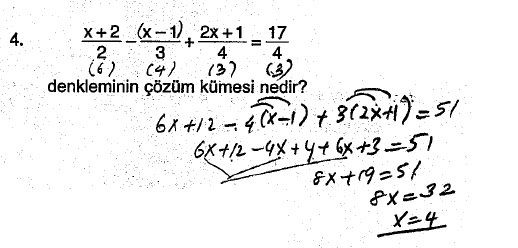 4. (x+2)/2 - (x-1)/3 + (2x+1)/4 = 17/4
(6) (4) (3) (3)
denkleminin çözüm kümesi nedir?
6x+12 - 4(x-1) + 3(2x+1) = 51
6x+12-4x+4+6x+3=51
8x+19=51
8x=32
x=4